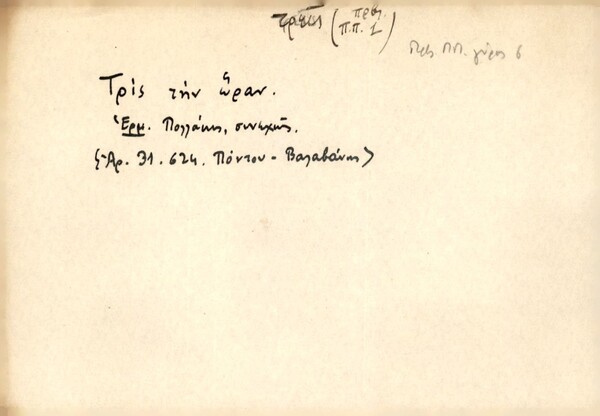 τρεῖς (πρβ. Π.Π. 1)
Π.Π. γύρος 6
Τρὶς τὴν ὥραν.
Ἑρμ. Πολλάκις, συνεχῶς.
(Ἀρ. 31.624. Πόντου - Βαλαβάνης)